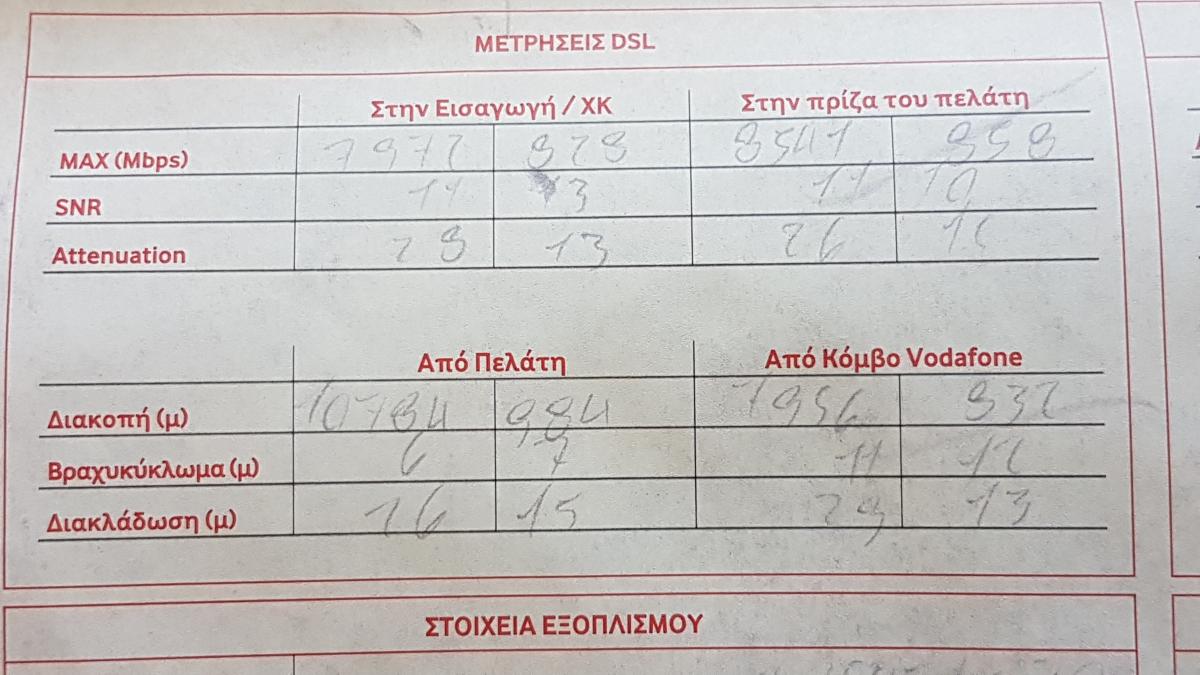 ΜΕΤΡΗΣΕΙΣ DSL
Στην Εισαγωγή / ΧΚ Στην πρίζα του πελάτη
MAX (Mbps) 7972 928 8541 958
SNR 11 13 11 10
Attenuation 28 13 26
Από Πελάτη Από Κόμβο Vodafone
Διακοπή (μ) 984 932
Βραχυκύκλωμα (μ) 6 7 11 12
Διακλάδωση (μ) 15 29 13
ΣΤΟΙΧΕΙΑ ΕΞΟΠΛΙΣΜΟΥ